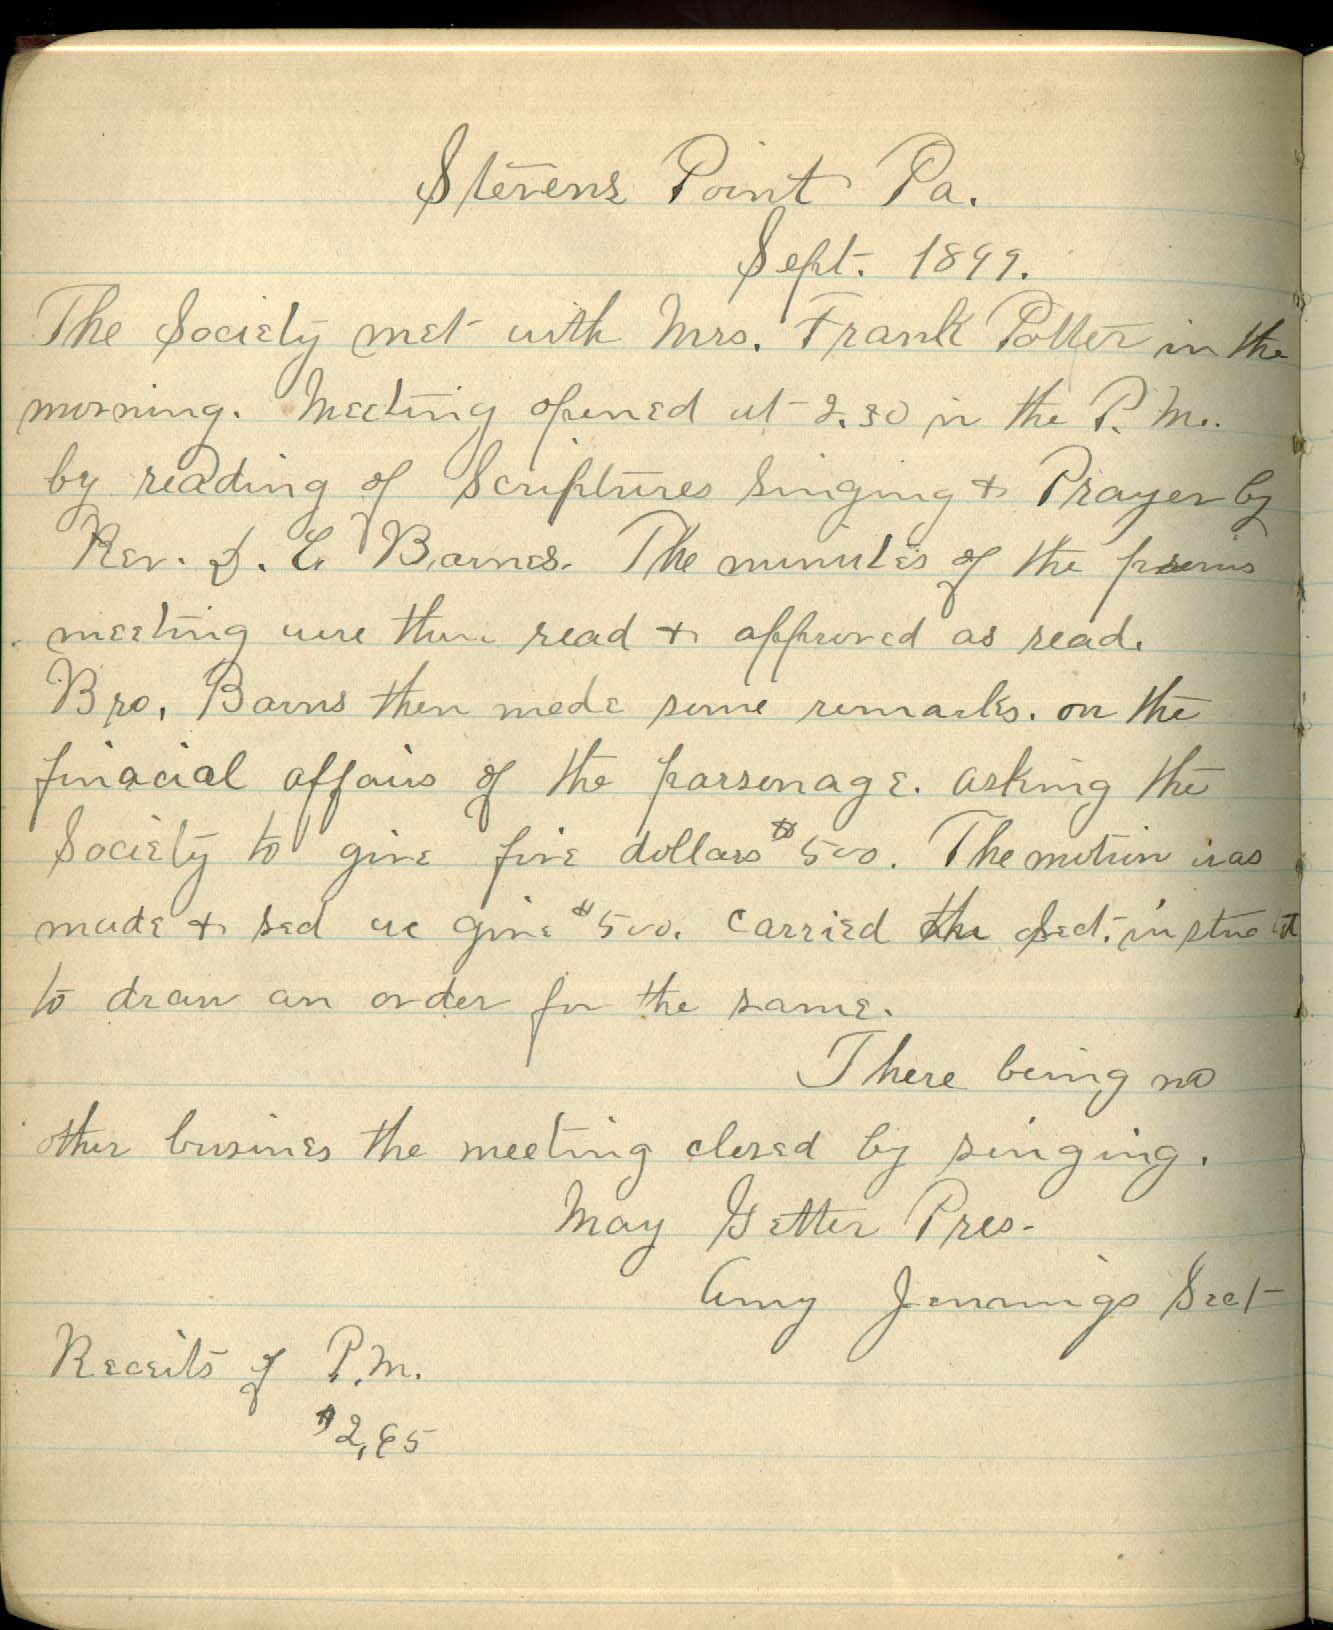 Stevens Point Pa.
Sept. 1899.
The Society met with Mrs. Frank Potter in the
morning. Meeting opened at 2.30 in the P. M.
by reading of Scriptures singing + Prayer by
Rev. S. E. Barnes. The minutes of the
meeting were then read + approved as read.
Bro. Barns then made some remarks. on the
finacial affairs of the parsonage. asking the
Society to give five dollars $500. The motion was
made + sed we give $500. Carried the Sect. instructed
to draw an order for the same.
There being no
other busines the meeting closed by singing.
May Getter Pres.
Amy Jennings Sect
Receits of P.M.
$2,65